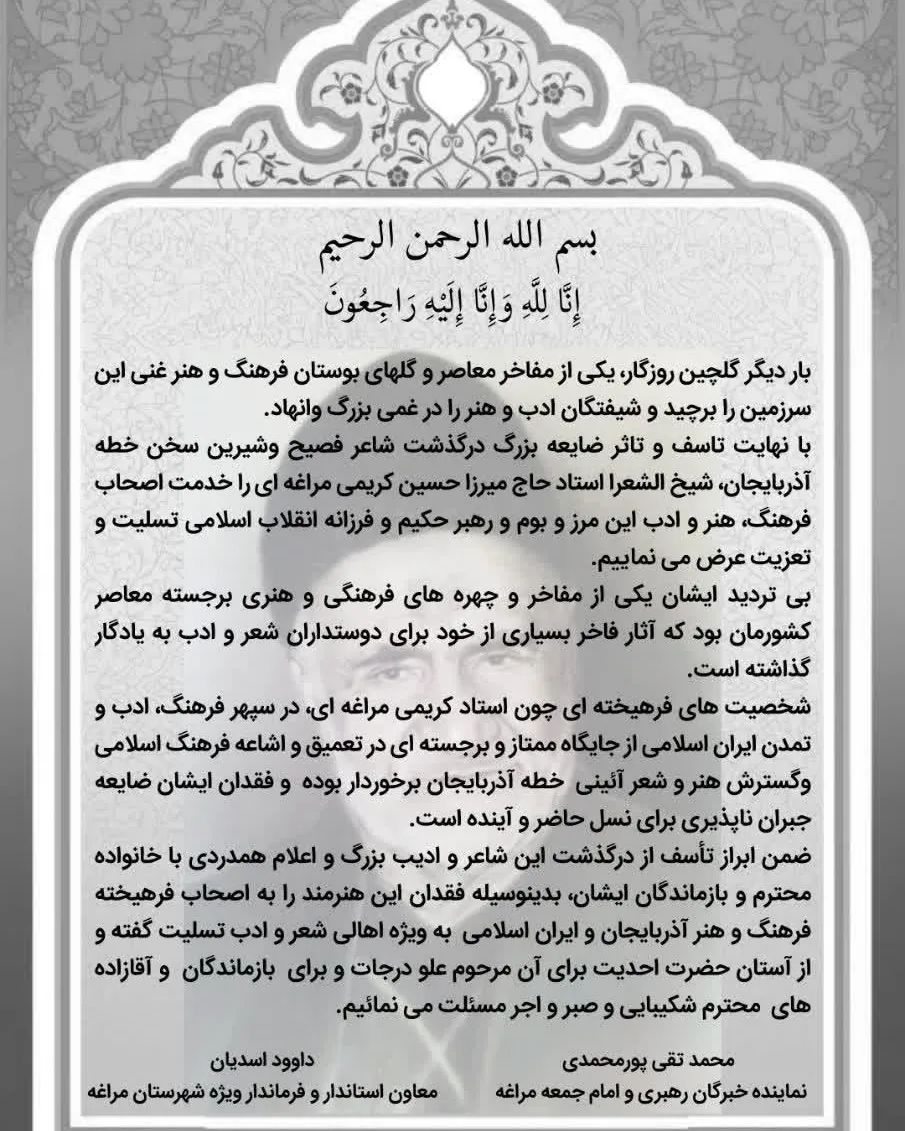 بسم الله الرحمن الرحیم
إِنَّا لِلَّهِ وَإِنَّا إِلَيْهِ رَاجِعُونَ
بار دیگر گلچین روزگار، یکی از مفاخر معاصر و گلهای بوستان فرهنگ و هنر غنی این
سرزمین را برچید و شیفتگان ادب و هنر را در غمی بزرگ وانهاد.
با نهایت تاسف و تاثر ضایعه بزرگ درگذشت شاعر فصیح وشیرین سخن خطه
آذربایجان، شیخ الشعرا استاد حاج میرزا حسین کریمی مراغه ای را خدمت اصحاب
فرهنگ، هنر و ادب این مرز و بوم و رهبر حکیم و فرزانه انقلاب اسلامی تسلیت و
تعزیت عرض می نماییم.
بی تردید ایشان یکی از مفاخر و چهره های فرهنگی و هنری برجسته معاصر
کشورمان بود که آثار فاخر بسیاری از خود برای دوستداران شعر و ادب به یادگار
گذاشته است.
شخصیت های فرهیخته ای چون استاد کریمی مراغه ای، در سپهر فرهنگ، ادب و
تمدن ایران اسلامی از جایگاه ممتاز و برجسته ای در تعمیق و اشاعه فرهنگ اسلامی
وگسترش هنر و شعر آئینی خطه آذربایجان برخوردار بوده و فقدان ایشان ضایعه
جبران ناپذیری برای نسل حاضر و آینده است.
ضمن ابراز تأسف از درگذشت این شاعر و ادیب بزرگ و اعلام همدردی با خانواده
محترم و بازماندگان ایشان، بدینوسیله فقدان این هنرمند را به اصحاب فرهیخته
فرهنگ و هنر آذربایجان و ایران اسلامی به ویژه اهالی شعر و ادب تسلیت گفته و
از آستان حضرت احدیت برای آن مرحوم علو درجات و برای بازماندگان و آقازاده
های محترم شکیبایی و صبر و اجر مسئلت می نمائیم.
محمد تقی پورمحمدی
نماینده خبرگان رهبری و امام جمعه مراغه
داوود اسدیان
معاون استاندار و فرماندار ویژه شهرستان مراغه